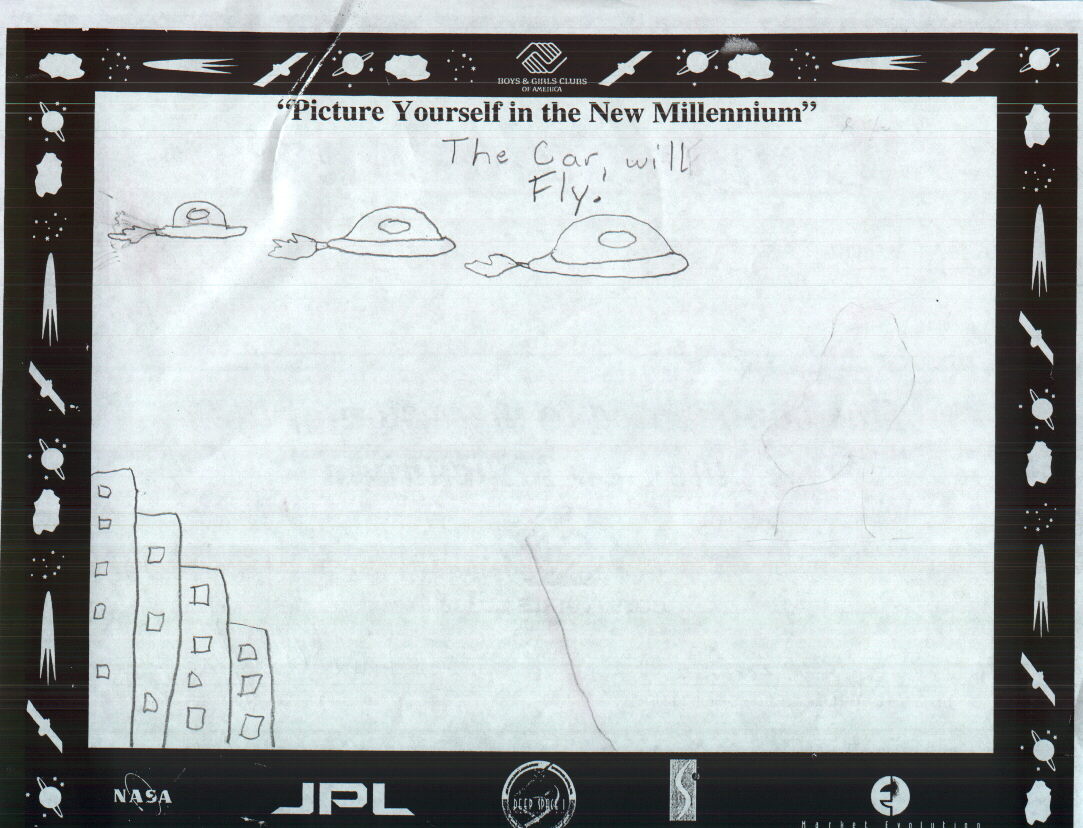 BOYS & GIRLS CLUBS
OF AMERICA
“Picture Yourself in the New Millennium”
The Car, will
Fly!
NASA
JPL
DEEP SPACE 1
Market Evolution